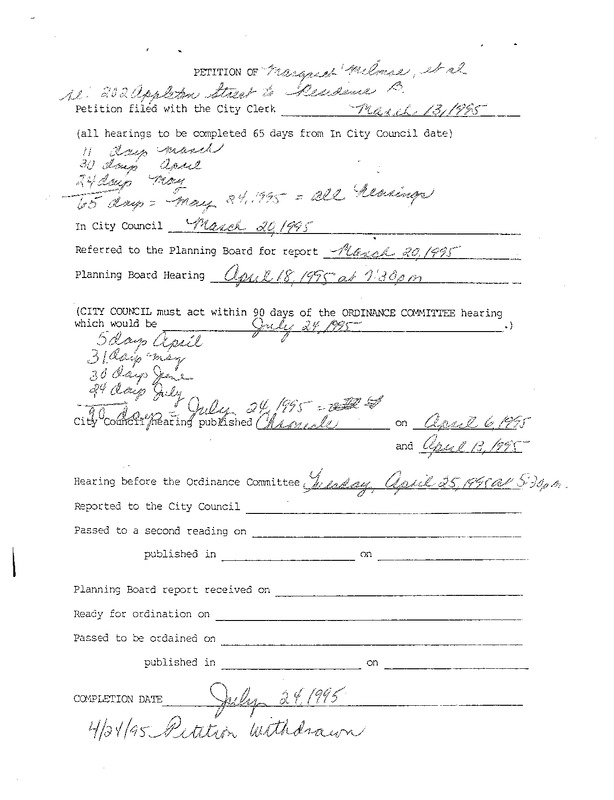 PETITION OF Margaret Milmoe, et al
re: 202 Appleton Street to Residence B.
Petition filed with the City Clerk March 13, 1995
(all hearings to be completed 65 days from In City Council date)
11 days March
30 days April
24 days May
65 days = May 24, 1995 = all hearings
In City Council March 20, 1995
Referred to the Planning Board for report March 20, 1995
Planning Board Hearing April 18, 1995 at 7:30pm
(CITY COUNCIL must act within 90 days of the ORDINANCE COMMITTEE hearing
which would be July 24, 1995 .)
5 days April
31 days May
30 days June
24 days July
90 days = July 24, 1995 =
City Council hearing published Chronicle on April 6, 1995
and April 13, 1995
Hearing before the Ordinance Committee Tuesday, April 25, 1995 at 5:30p.m.
Reported to the City Council
Passed to a second reading on
published in on
Planning Board report received on
Ready for ordination on
Passed to be ordained on
published in on
COMPLETION DATE July 24, 1995
4/24/95 Petition Withdrawn